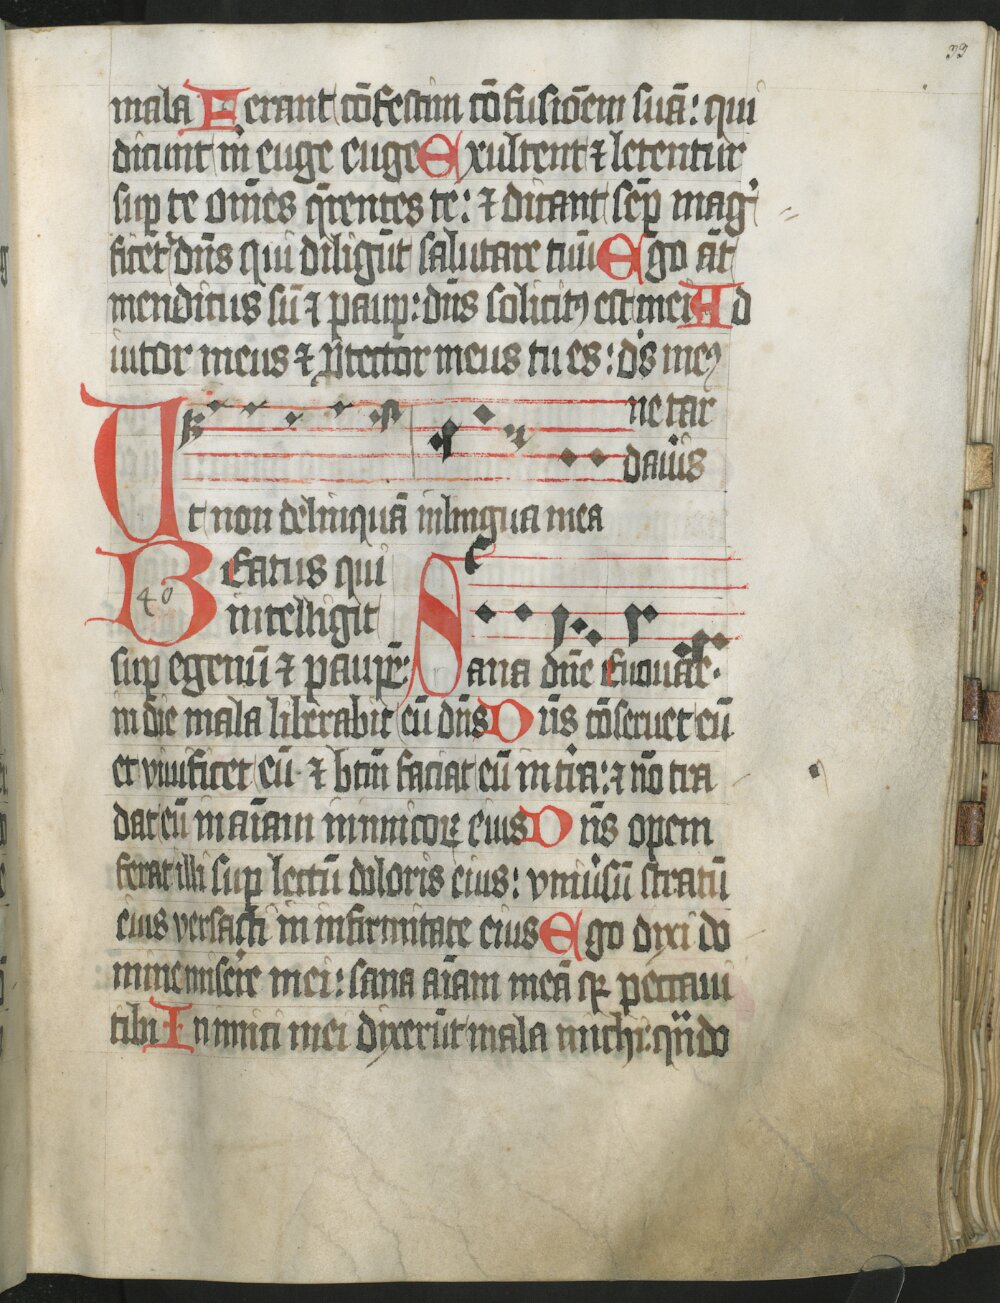 33
mala Ferant cōfestim cōfusiōem suā: qui
dicunt m̄ euge euge Exultent ⁊ letentur
sup te om̄es q̄rentes te: ⁊ dicant semp̄ mag
ficet dn̄s qui diligūt salutare tuū Ego aūt
mendicus sū ⁊ paup: dn̄s solicitꝰ est mei Ad
iutor meus ⁊ ꝓtector meus tu es: ds̄ meꝰ
ne tar
daūis
Ut non delinquā in lingua mea
Beatus qui
40
intelligit
sup egenū ⁊ paupē: Sana dn̄e Euouae.
in die mala liberabit eū dn̄s Dn̄s cōseruet eū
et viuificet eū ⁊ btm̄ faciat eū in tr̄a: ⁊ nō tra
dat eū in aīam inimicoꝝ eius Dn̄s opem
ferat illi sup lectū doloris eius: vniūsū stratū
eius versasti in infirmitate eius Ego dixi do
mine miserē mei: sana aīam meā qꝛ peccaui
tibi Inimici mei dixerūt mala michi: qn̄do